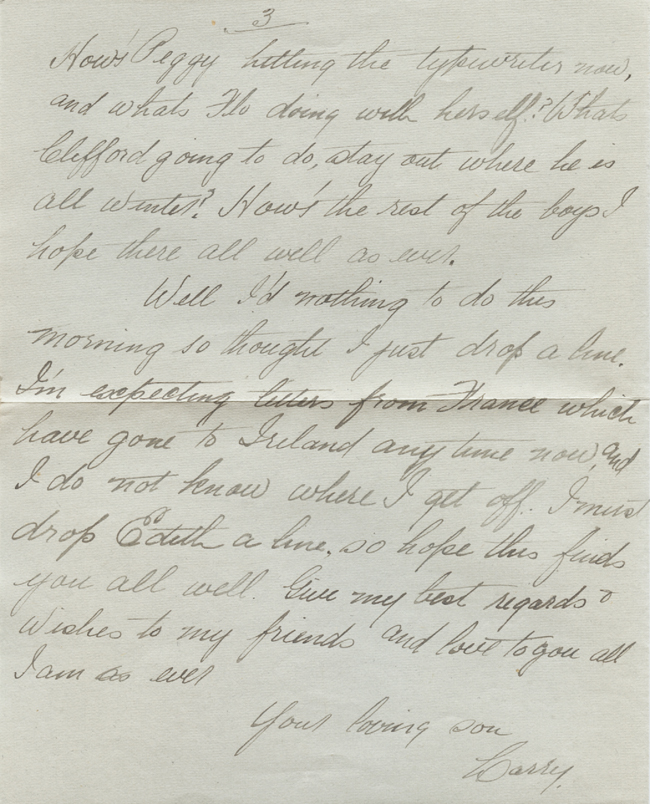 3
How's Peggy hitting the typewriter now,
and whats Flo doing with herself? Whats
Clifford going to do, stay out where he is
all winter? How's the rest of the boys I
hope there all well as ever.
Well I'd nothing to do this
morning so thought I just drop a line.
I'm expecting letters from France which
have gone to Ireland anytime now, and
I do not know where I get off. I must
drop Edith a line, so hope this finds
you all well. Give my best regards &
Wishes to my friends and love to you all
I am as ever
Your loving son
Harry.